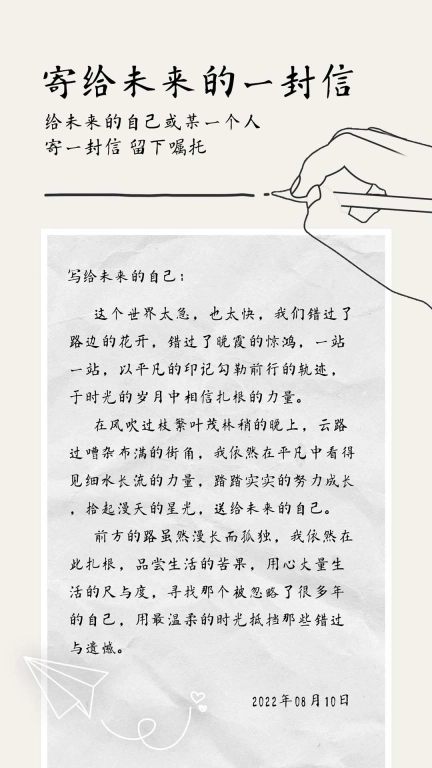 寄给未来的一封信
给未来的自己或某一个人
寄一封信 留下嘱托
写给未来的自己：
这个世界太急，也太快，我们错过了
路边的花开，错过了晚霞的惊鸿，一站
一站，以平凡的印记勾勒前行的轨迹，
于时光的岁月中相信扎根的力量。
在风吹过枝繁叶茂林稍的晚上，云路
过嘈杂布满的街角，我依然在平凡中看得
见细水长流的力量，踏踏实实的努力成长
，拾起漫天的星光，送给未来的自己。
前方的路虽然漫长而孤独，我依然在
此扎根，品尝生活的苦果，用心丈量生
活的尺与度，寻找那个被忽略了很多年
的自己，用最温柔的时光抵挡那些错过
与遗憾。
2022年08月10日